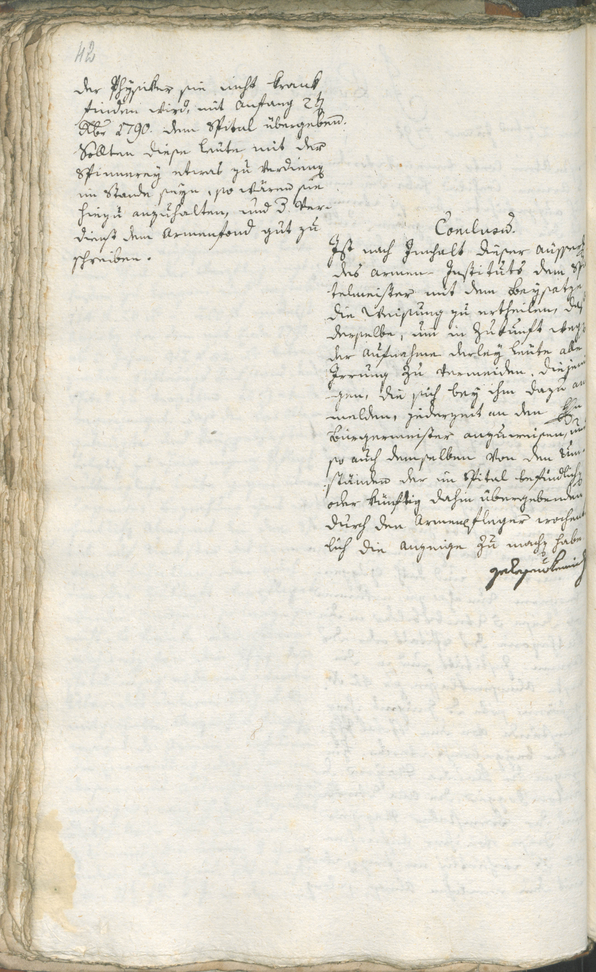 42
der Physiker sie nicht krank
finden wird, mit Anfang
1790. dem Spital übergeben.
Sollten diese Leute mit der
Spinnerey etwas zu verdienen
im Stande seyn, so wären sie
hiezu anzuhalten, und d Ver-
dienst dem Armenfond gut zu
schreiben.
Conclusum.
Ist nach Innhalt dieser Ausser
des Armen-Instituts dem Spi
telmeister mit dem Beysatze
die Weisung zu ertheilen, daß
derselbe, um in Zukunft weg
der Aufnahme derley Leute alle
Irrung zu vermeiden, diejeni
gen, die sich bey ihm dazu an
melden, jederzeit an den
Bürgermeister anzuweisen, und
so auch demselben von den Um-
ständen der im Spital befindlich
oder künftig dahin übergebenden
durch den Armenpfleger wochent
lich die Anzeige zu mach habe